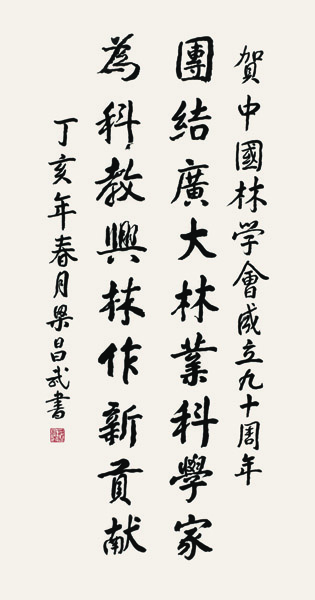 賀中國林学會成立九十周年
團結廣大林業科學家
為科教興林作新貢献
丁亥年春月梁昌武書